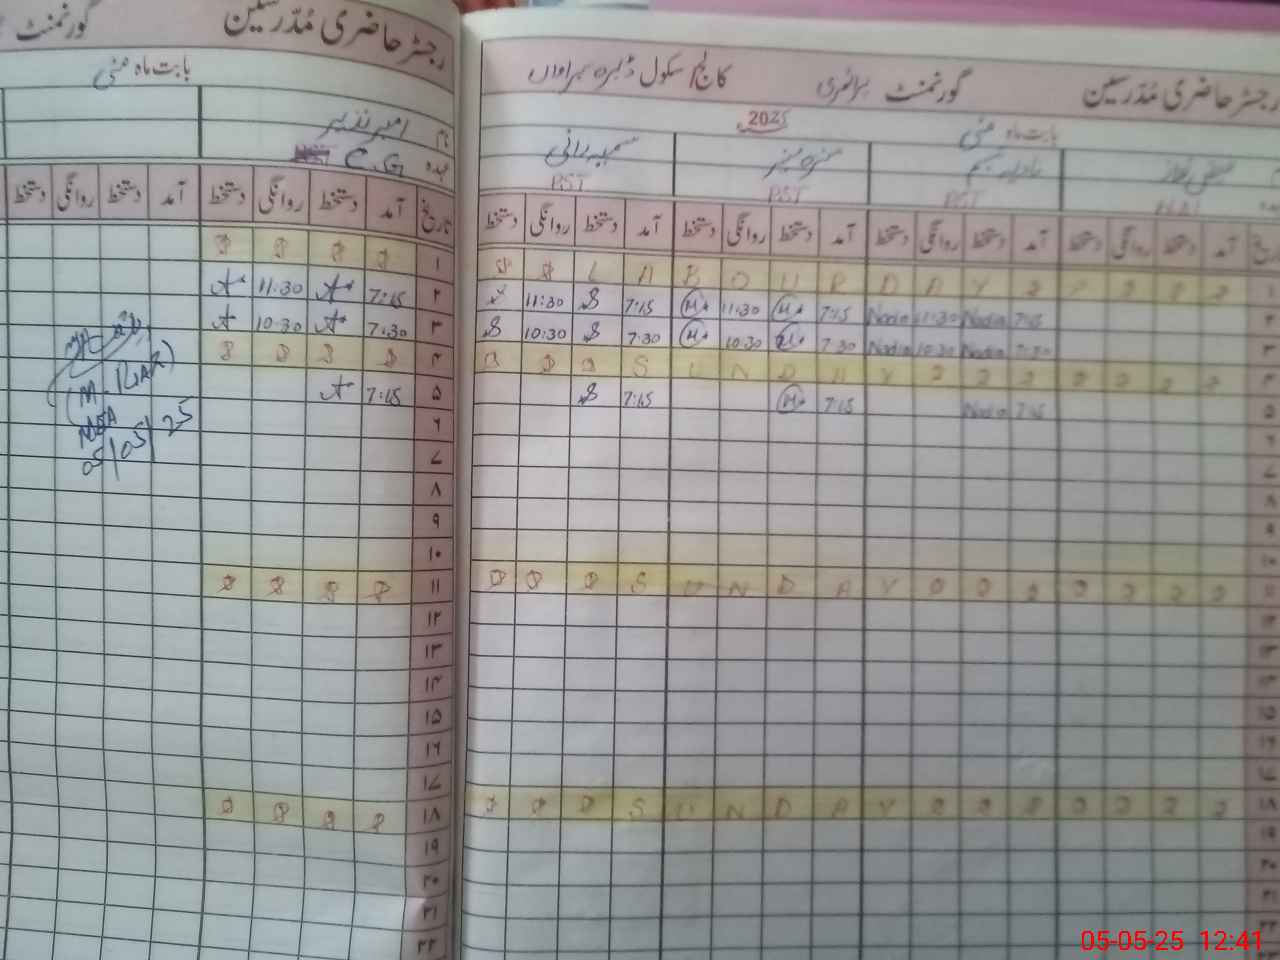 رجسٹر حاضری مُدّرسین گورنمنٹ
بابت ماہ مئی
نام امبر نذیر
عہدہ C.G
تاریخ آمد دستخط روانگی دستخط آمد دستخط روانگی دستخط
۱
۲ 7:15 A 11:30 A
۳ 7:30 A 10:30 A
۴
۵ 7:15 A
۶
۷
۸
۹
۱۰
۱۱
۱۲
۱۳
۱۴
۱۵
۱۶
۱۷
۱۸
۱۹
۲۰
۲۱
۲۲
MEA
05/05/25
رجسٹر حاضری مُدّرسین گورنمنٹ پرائمری کالج/سکول
بابت ماہ مئی 2025
نادیہ بیگم منزہ منیر سمیہ رانی
PST PST PST
تاریخ آمد دستخط روانگی دستخط آمد دستخط روانگی دستخط آمد دستخط روانگی دستخط آمد دستخط روانگی دستخط
L A B O U R D A Y
S 11:30 S 7:15 M 11:30 M 7:15 Nadia 11:30 Nadia 7:15
S 10:30 S 7:30 M 10:30 M 7:30 Nadia 10:30 Nadia 7:30
S U N D A Y
S 7:15 M 7:15 Nadia 7:15
S U N D A Y
S U N D A Y
05-05-25 12:41